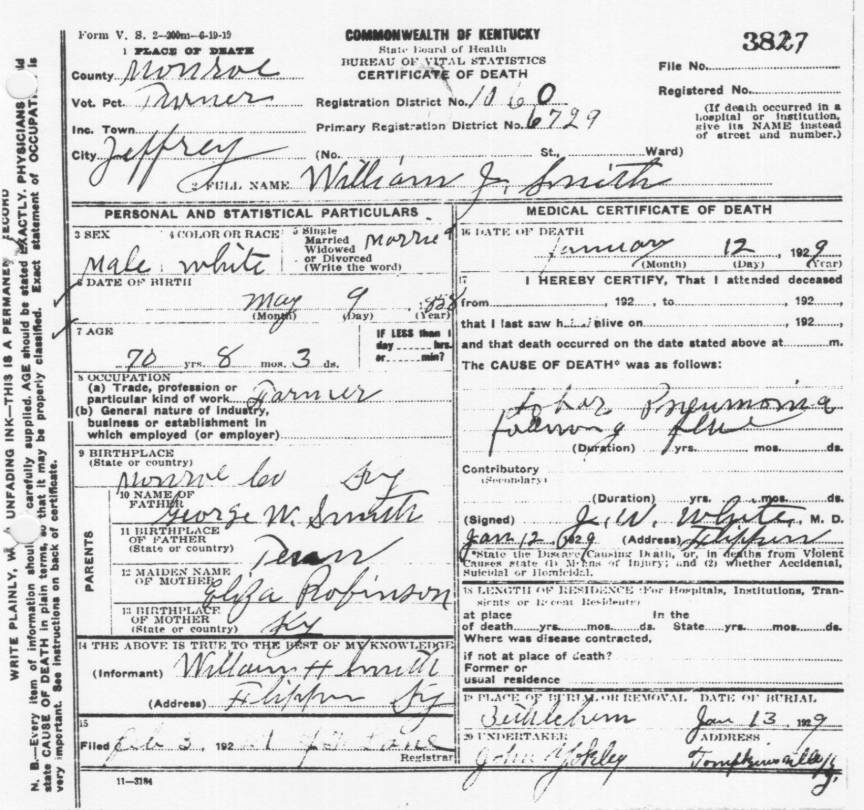 Form V. S. 2—200m—6-19-19
COMMONWEALTH OF KENTUCKY
State Board of Health
BUREAU OF VITAL STATISTICS
CERTIFICATE OF DEATH
3827
File No.
Registered No.
(If death occurred in a hospital or institution, give its NAME instead of street and number.)
1 PLACE OF DEATH
County Monroe
Vot. Pct. Turner
Registration District No. 1060
Inc. Town
Primary Registration District No. 6729
City Jeffrey (No. St., Ward)
2 FULL NAME William J. Smith
PERSONAL AND STATISTICAL PARTICULARS
3 SEX Male
4 COLOR OR RACE White
5 Single Married Widowed or Divorced (Write the word) Married
6 DATE OF BIRTH
May 9, 1858
(Month) (Day) (Year)
7 AGE
70 yrs. 8 mos. 3 ds.
IF LESS than 1 day hrs. or min?
8 OCCUPATION
(a) Trade, profession or particular kind of work Farmer
(b) General nature of industry, business or establishment in which employed (or employer)
9 BIRTHPLACE (State or country)
Monroe Co Ky
PARENTS
10 NAME OF FATHER George W. Smith
11 BIRTHPLACE OF FATHER (State or country) Tenn
12 MAIDEN NAME OF MOTHER Eliza Robinson
13 BIRTHPLACE OF MOTHER (State or country) Ky
14 THE ABOVE IS TRUE TO THE BEST OF MY KNOWLEDGE
(Informant) William H Smith
(Address) Flippin Ky
15
Filed Feb 3, 192
Registrar
11—3184
MEDICAL CERTIFICATE OF DEATH
16 DATE OF DEATH
January 12, 1929
(Month) (Day) (Year)
17 I HEREBY CERTIFY, That I attended deceased
from , 192 , to , 192 ,
that I last saw h alive on , 192 ,
and that death occurred on the date stated above at m.
The CAUSE OF DEATH* was as follows:
Lobar Pneumonia
following flue
(Duration) yrs. mos. ds.
Contributory
(Secondary)
(Duration) yrs. mos. ds.
(Signed) J. W. White, M. D.
Jan 12 1929 (Address) Flippin
*State the Disease Causing Death, or, in deaths from Violent Causes state (1) Means of Injury; and (2) whether Accidental, Suicidal or Homicidal.
18 LENGTH OF RESIDENCE (For Hospitals, Institutions, Transients or Recent Residents)
at place of death yrs. mos. ds. In the State yrs. mos. ds.
Where was disease contracted,
if not at place of death?
Former or usual residence
19 PLACE OF BURIAL OR REMOVAL DATE OF BURIAL
Bethlehem Jan 13 1929
20 UNDERTAKER ADDRESS
John Yokley Tompkinsville Ky
N. B.—Every item of information should carefully supplied. AGE should be stated EXACTLY. PHYSICIANS
state CAUSE OF DEATH in plain terms, so that it may be properly classified. Exact statement of OCCUPATION is
very important. See instructions on back of certificate.
WRITE PLAINLY, UNFADING INK—THIS IS A PERMANENT RECORD